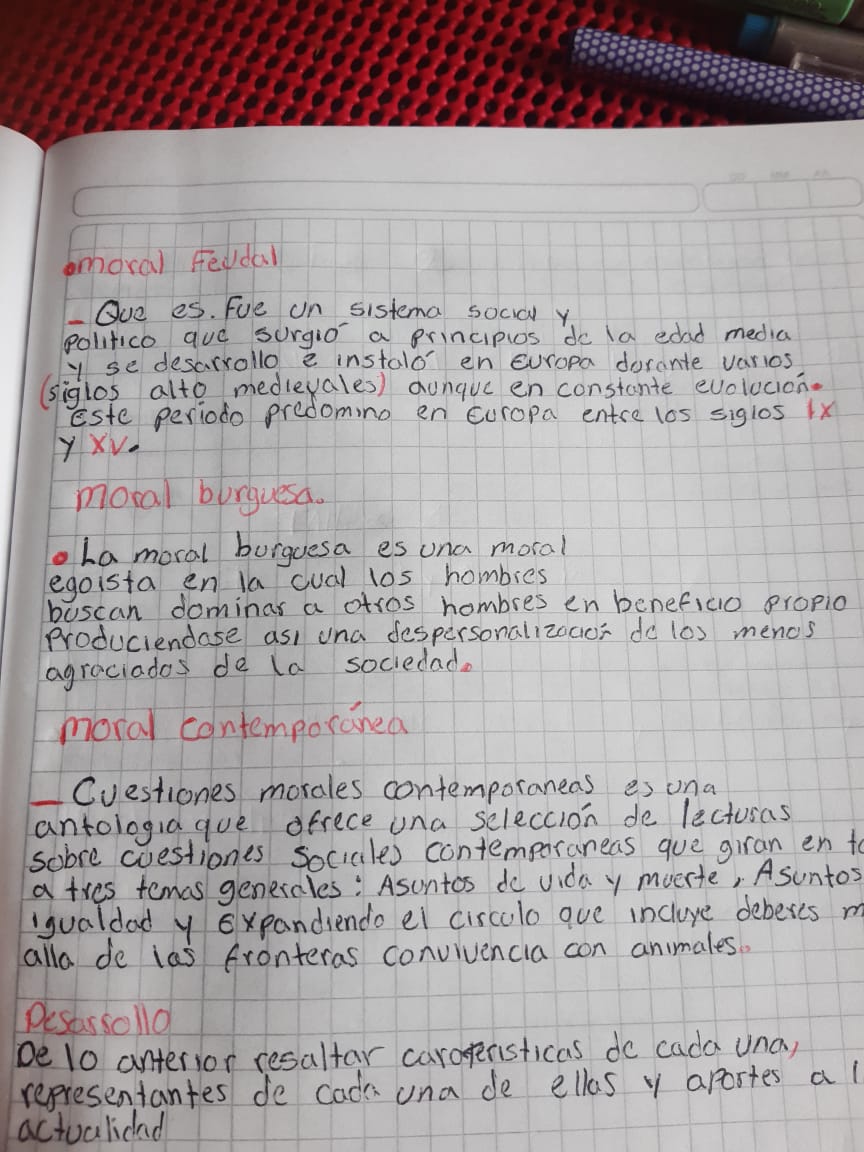 moral Feudal
- Que es. Fue un sistema social y
politico que surgio a principios de la edad media
y se desarrollo e instaló en Europa durante varios
(siglos alto medievales) aunque en constante evolucion.
Este periodo predomino en Europa entre los siglos IX
y XV.
moral burguesa.
• La moral burguesa es una moral
egoista en la cual los hombres
buscan dominar a otros hombres en beneficio propio
Produciendase asi una despersonalización de los menos
agraciados de la sociedad.
moral contemporánea
- Cuestiones morales contemporaneas es una
antologia que ofrece una selección de lecturas
sobre cuestiones sociales contemporaneas que giran en to
a tres temas generales: Asuntos de vida y muerte, Asuntos
igualdad y Expandiendo el circulo que incluye deberes m
alla de las fronteras convivencia con animales.
Desarrollo
De lo anterior resaltar caracteristicas de cada una,
representantes de cada una de ellas y aportes a l
actualidad